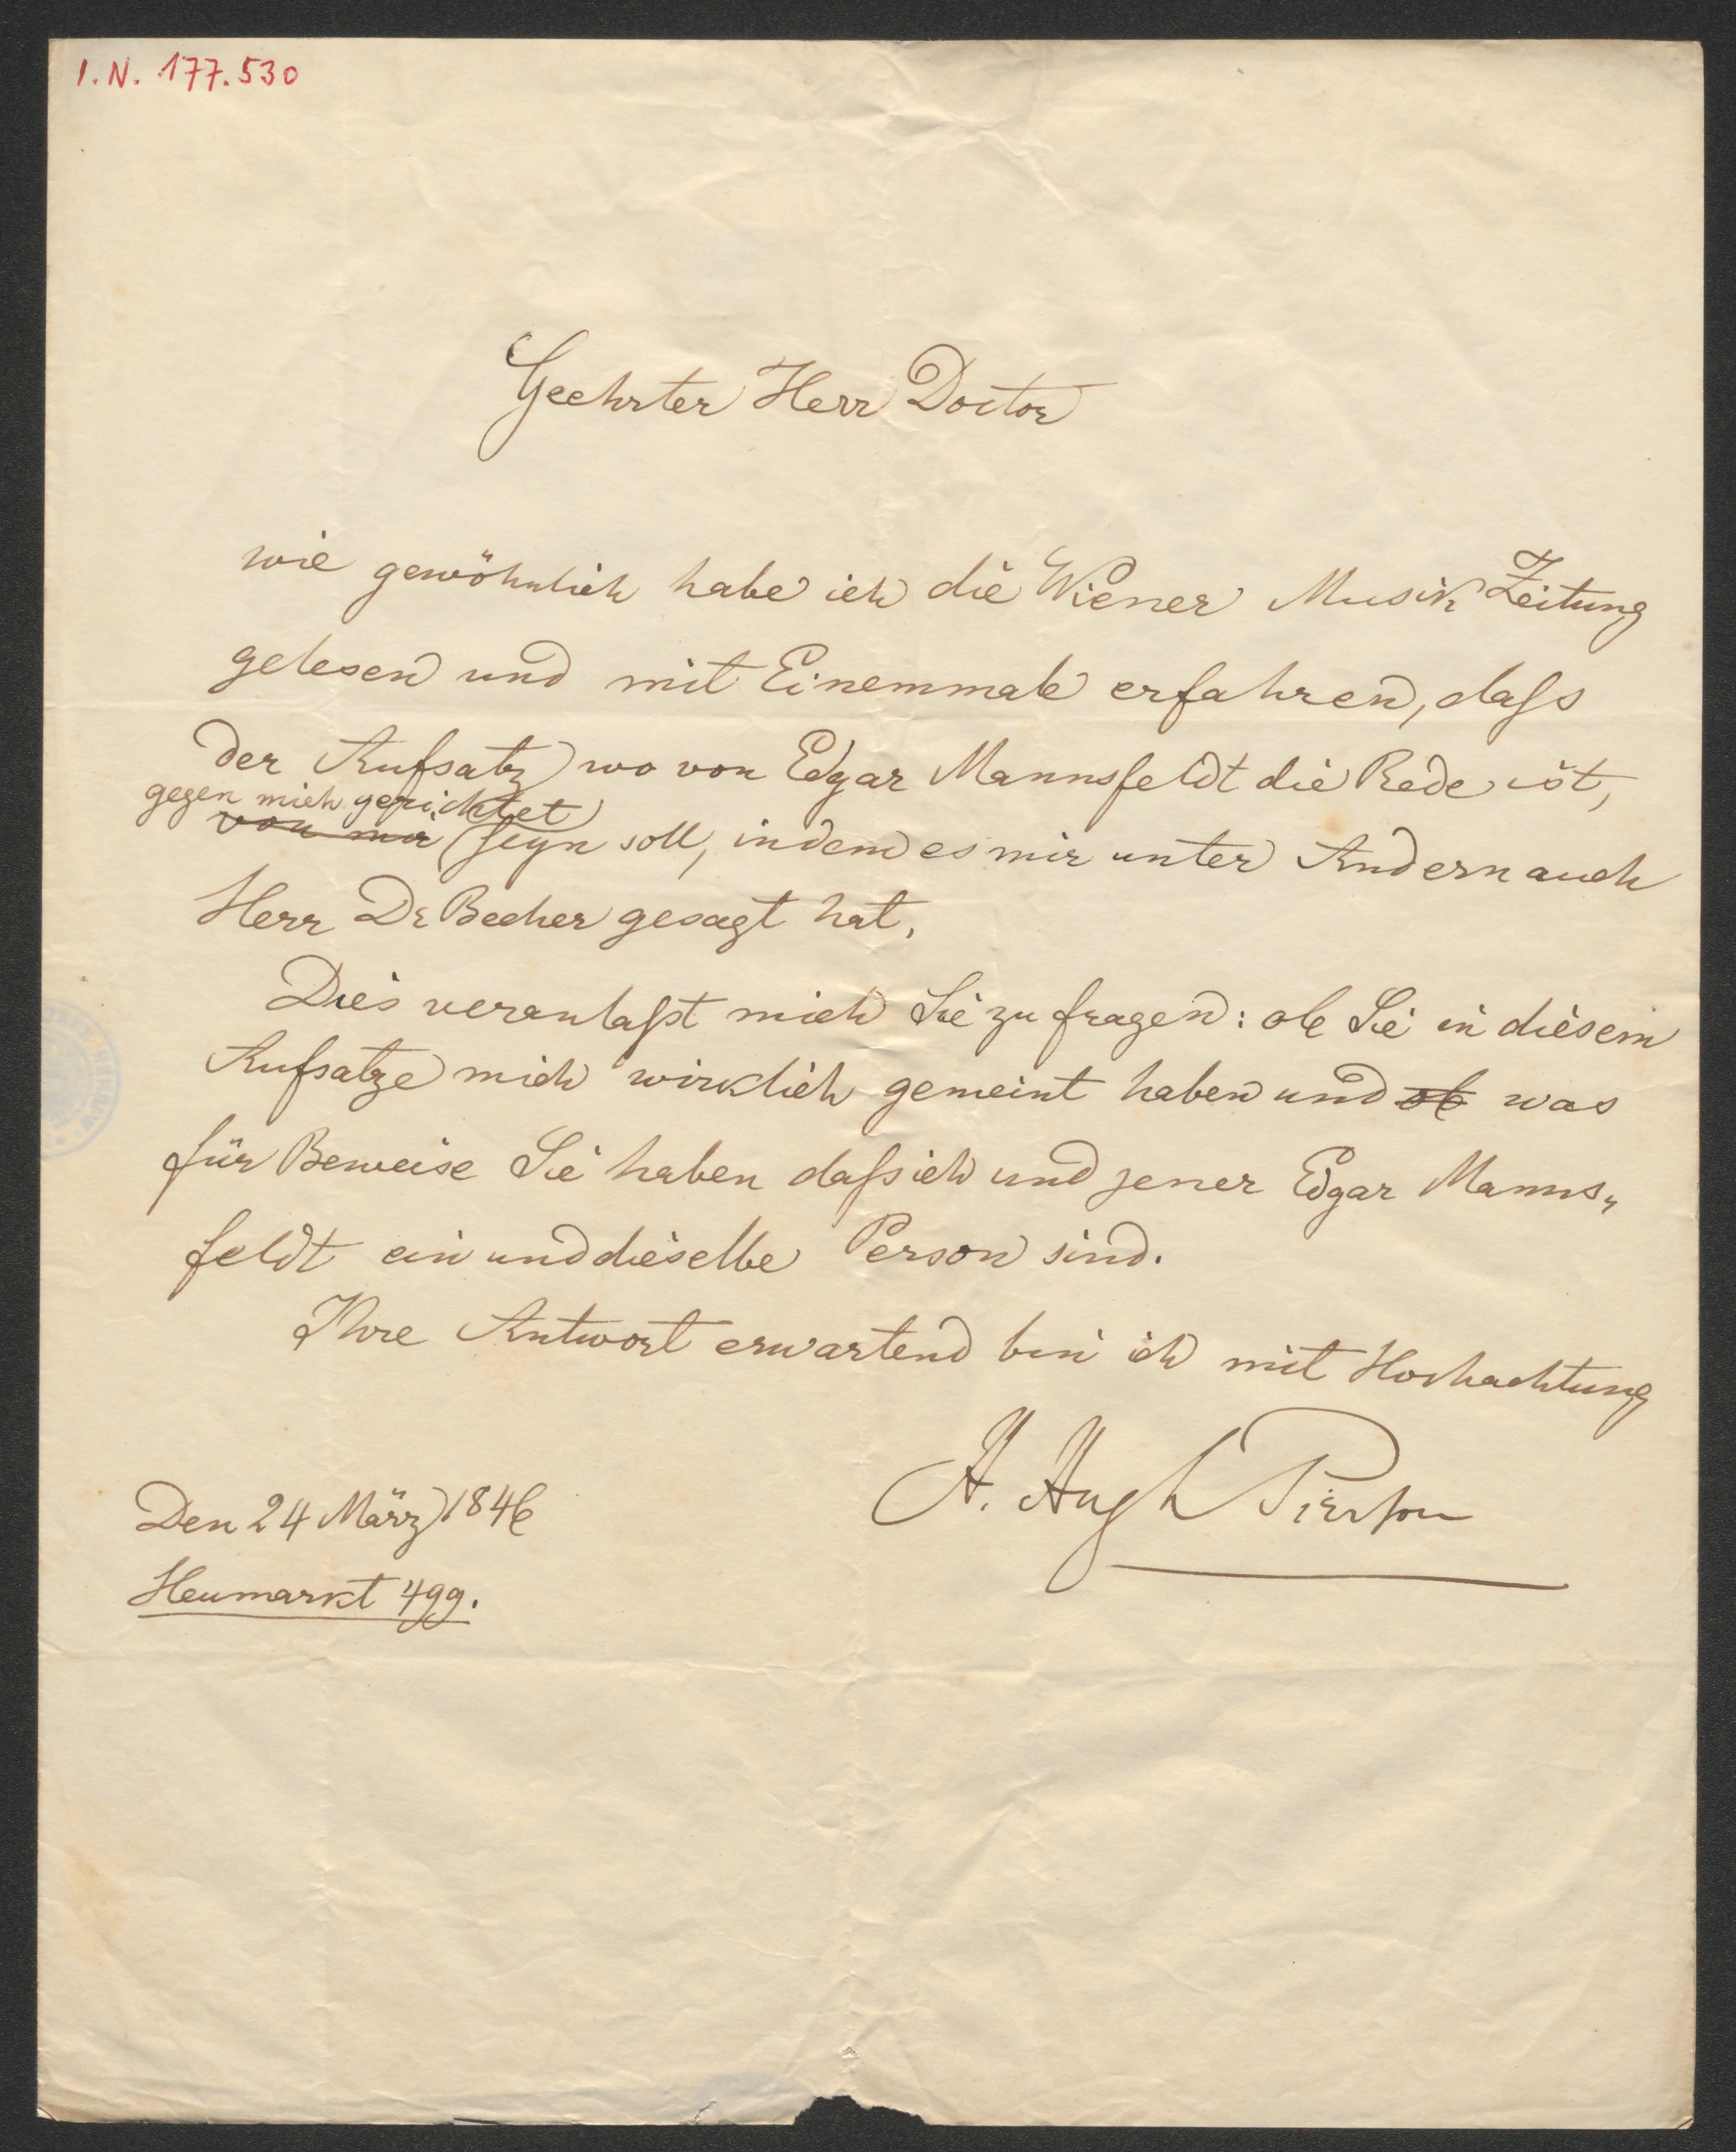 I.N. 177.530
Geehrter Herr Doctor
wie gewöhnlich habe ich die Wiener Musik Zeitung
gelesen und mit Einemmale erfahren, daſs
der Aufsatz wo von Edgar Mannsfeldt die Rede ist,
gegen mich gerichtet
von mir seyn soll, indem es mir unter Andern auch
Herr Dr Becher gesagt hat.
Dies veranlaſst mich Sie zu fragen: ob Sie in diesem
Aufsatze mich wirklich gemeint haben und ob was
für Beweise Sie haben daſs ich und jener Edgar Manns„
feldt ein und dieselbe Person sind.
Ihre Antwort erwartend bin ich mit Hochachtung
H. Hugh Pierson
Den 24 März 1846
Heumarkt 499.